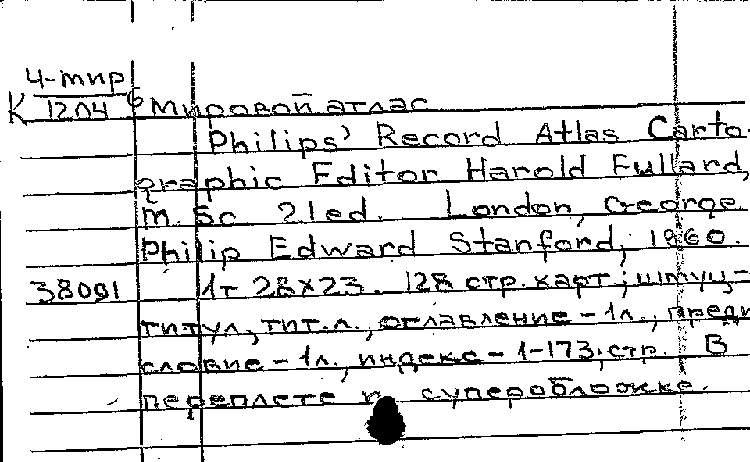 4-мир
К 1204 б Мировой атлас
Philips' Record Atlas Carto-
graphic Editor Harold Fullard,
M. Sc 21ed. London, George
Philip Edward Stanford, 1960.
38091 1т 28х23. 128 стр. карт; шмуц-
титул, тит.л., оглавление - 1л., преди
словие - 1л., индекс - 1-173 стр. В
переплете и суперобложке.